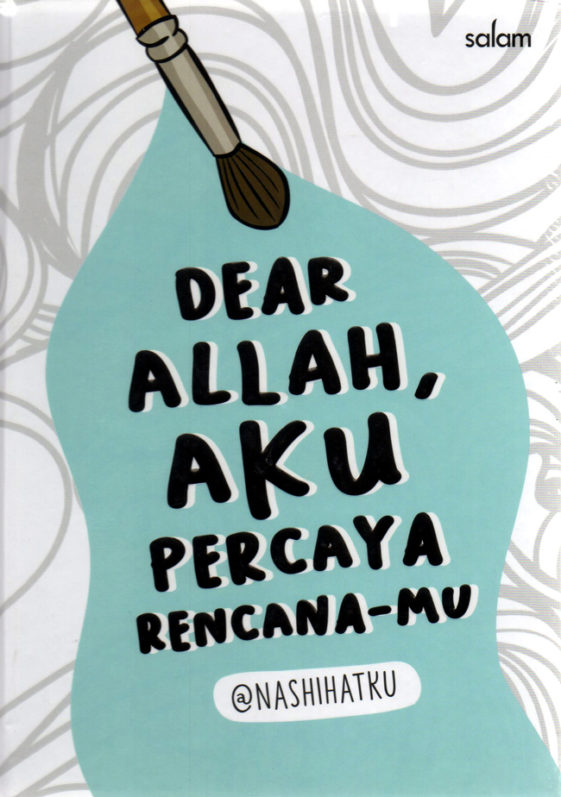 salam
DEAR
ALLAH,
AKU
PERCAYA
RENCANA-MU
@NASHIHATKU